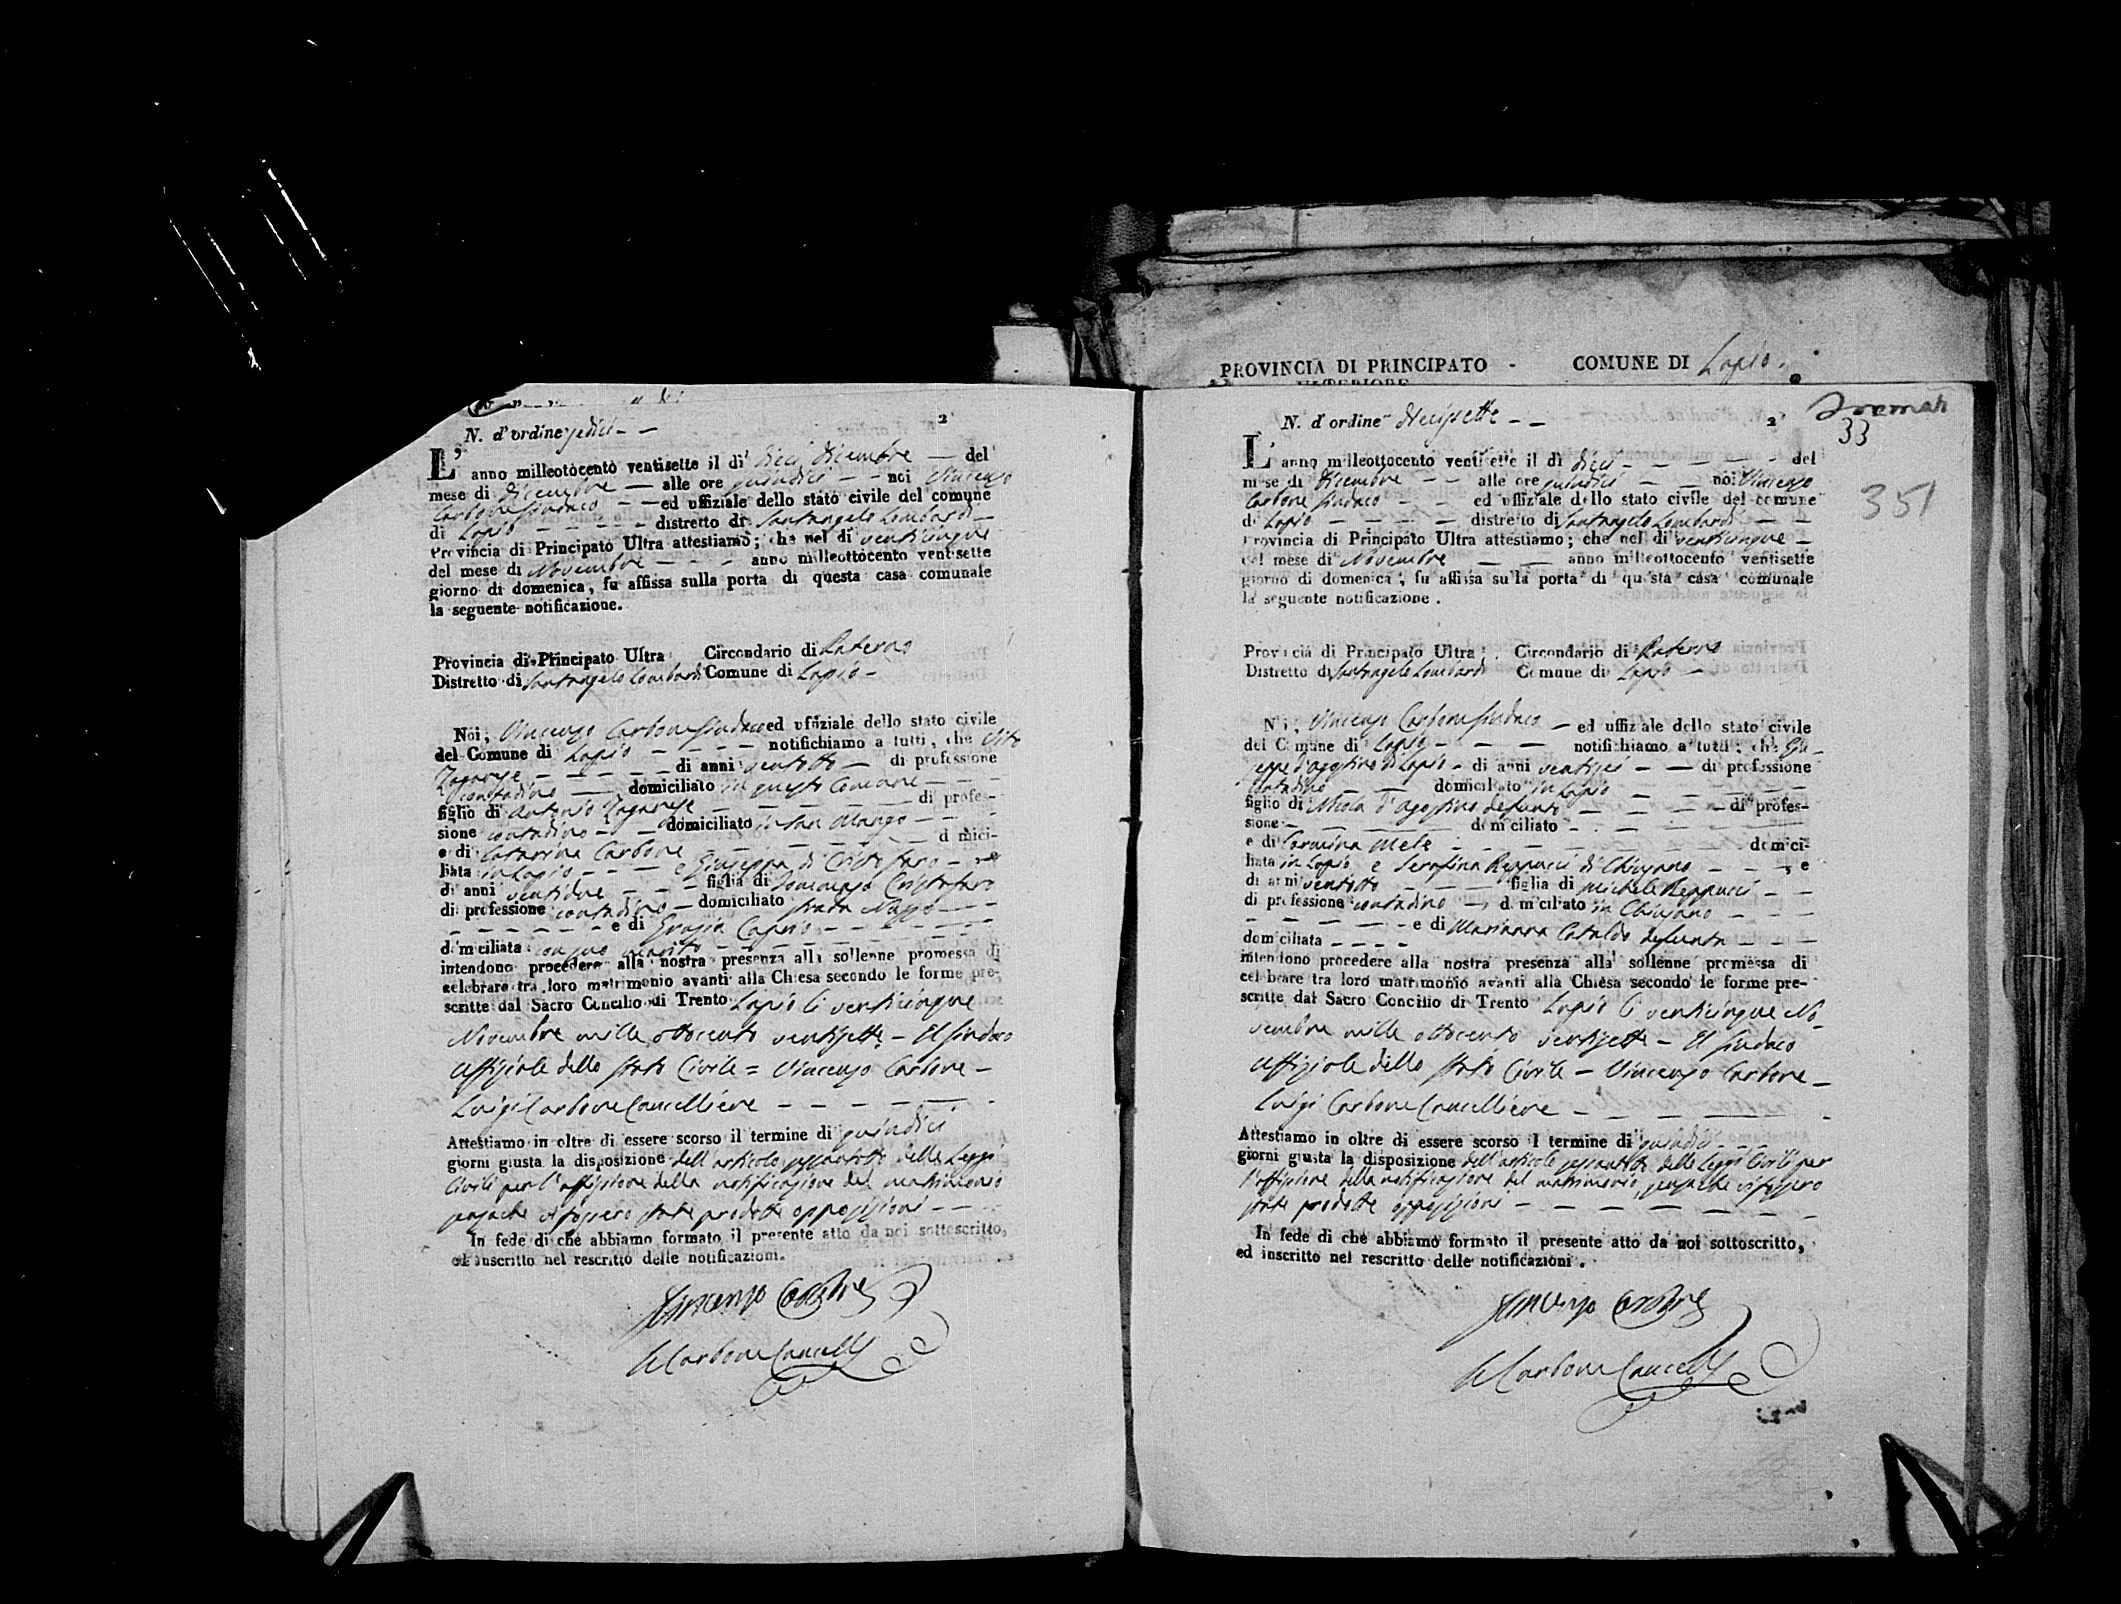 PROVINCIA DI PRINCIPATO - COMUNE DI Lapio.
ULTERIORE
2
N. d'ordine sedici - -
L'anno milleottocento ventisette il di dieci dicembre - del
mese di dicembre - alle ore quindici - - noi Vincenzo
Carbone sindaco - - ed uffiziale dello stato civile del comune
di Lapio - - - - - distretto di Santangelo Lombardi -
Provincia di Principato Ultra attestiamo; che nel di venticinque
del mese di Novembre - - - anno milleottocento ventisette
giorno di domenica, fu affissa sulla porta di questa casa comunale
la seguente notificazione.
Provincia di Principato Ultra Circondario di Paterno
Distretto di Santangelo Lombardi Comune di Lapio -
Noi, Vincenzo Carbone sindaco ed uffiziale dello stato civile
del Comune di Lapio - - - - notifichiamo a tutti, che Vito
Zagarese - - - - - di anni ventotto - di professione
contadino - domiciliato in questo Comune - - -
figlio di Antonio Zagarese - - - - - - di profes-
sione contadino - - domiciliato in San Mango - - -
e di Catarina Carbone - - - - - - - domici-
liata in Lapio - - - e Giuseppa di Cristofaro - - e
di anni ventidue - - - figlia di Domenico Cristofaro
di professione contadino - domiciliato strada - - -
- - - - - - e di Grazia Caprio - - - - - -
domiciliata con suo marito - - - - - - -
intendono procedere alla nostra presenza alla sollenne promessa di
celebrare tra loro matrimonio avanti alla Chiesa secondo le forme pre-
scritte dal Sacro Concilio di Trento Lapio li venticinque
Novembre mille ottocento ventisette - Il sindaco
uffiziale dello stato Civile = Vincenzo Carbone -
Luigi Carbone Cancelliere - - - - - -
Attestiamo in oltre di essere scorso il termine di quindici
giorni giusta la disposizione dell'articolo sessantotto delle Leggi
Civili per l'affissione della notificazione del matrimonio
senza che vi fossero state prodotte opposizioni - - -
In fede di che abbiamo formato il presente atto da noi sottoscritto,
ed inscritto nel rescritto delle notificazioni.
Vincenzo Carbone
L Carbone Cancell
33
351
N. d'ordine diecisette - - 2
L'anno milleottocento ventisette il di dieci - - - - - del
mese di dicembre - - alle ore quindici - - noi Vincenzo
Carbone sindaco - - ed uffiziale dello stato civile del comune
di Lapio - - - - distretto di Santangelo Lombardi - -
Provincia di Principato Ultra attestiamo; che nel di venticinque -
del mese di Novembre - - anno milleottocento ventisette
giorno di domenica, fu affissa sulla porta di questa casa comunale
la seguente notificazione.
Provincia di Principato Ultra Circondario di Paterno
Distretto di Santangelo Lombardi Comune di Lapio -
Noi, Vincenzo Carbone sindaco - ed uffiziale dello stato civile
del Comune di Lapio - - - notifichiamo a tutti, che Giu-
seppe d'Agostino di Lapio - di anni ventisei - - di professione
contadino - - domiciliato in Lapio - - - -
figlio di Nicola d'Agostino defunto - - - - di profes-
sione - - - - domiciliato - - - - -
e di Carmina Mele - - - - - - - domici-
liata in Lapio e Serafina Reppucci di Chiusano - - - , e
di anni ventotto - - - figlia di Michele Reppucci - -
di professione contadino - , domiciliato in Chiusano - - -
- - - - - e di Marianna Cataldo defunta - - -
domiciliata - - - -
intendono procedere alla nostra presenza alla sollenne promessa di
celebrare tra loro matrimonio avanti alla Chiesa secondo le forme pre-
scritte dal Sacro Concilio di Trento Lapio li venticinque No-
vembre mille ottocento ventisette - Il sindaco
uffiziale dello stato Civile - Vincenzo Carbone -
Luigi Carbone Cancelliere - - - - -
Attestiamo in oltre di essere scorso il termine di quindici - -
giorni giusta la disposizione dell'articolo sessantotto delle Leggi Civili per
l'affissione della notificazione del matrimonio, senza che vi fossero
state prodotte opposizioni - - - - - - -
In fede di che abbiamo formato il presente atto da noi sottoscritto,
ed inscritto nel rescritto delle notificazioni.
Vincenzo Carbone
L Carbone Cancell